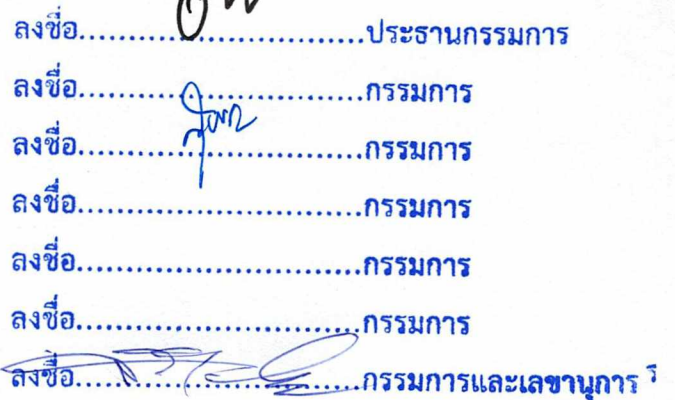 ลงชื่อ................................ประธานกรรมการ
ลงชื่อ................................กรรมการ
ลงชื่อ................................กรรมการ
ลงชื่อ................................กรรมการ
ลงชื่อ................................กรรมการ
ลงชื่อ................................กรรมการ
ลงชื่อ................................กรรมการและเลขานุการ